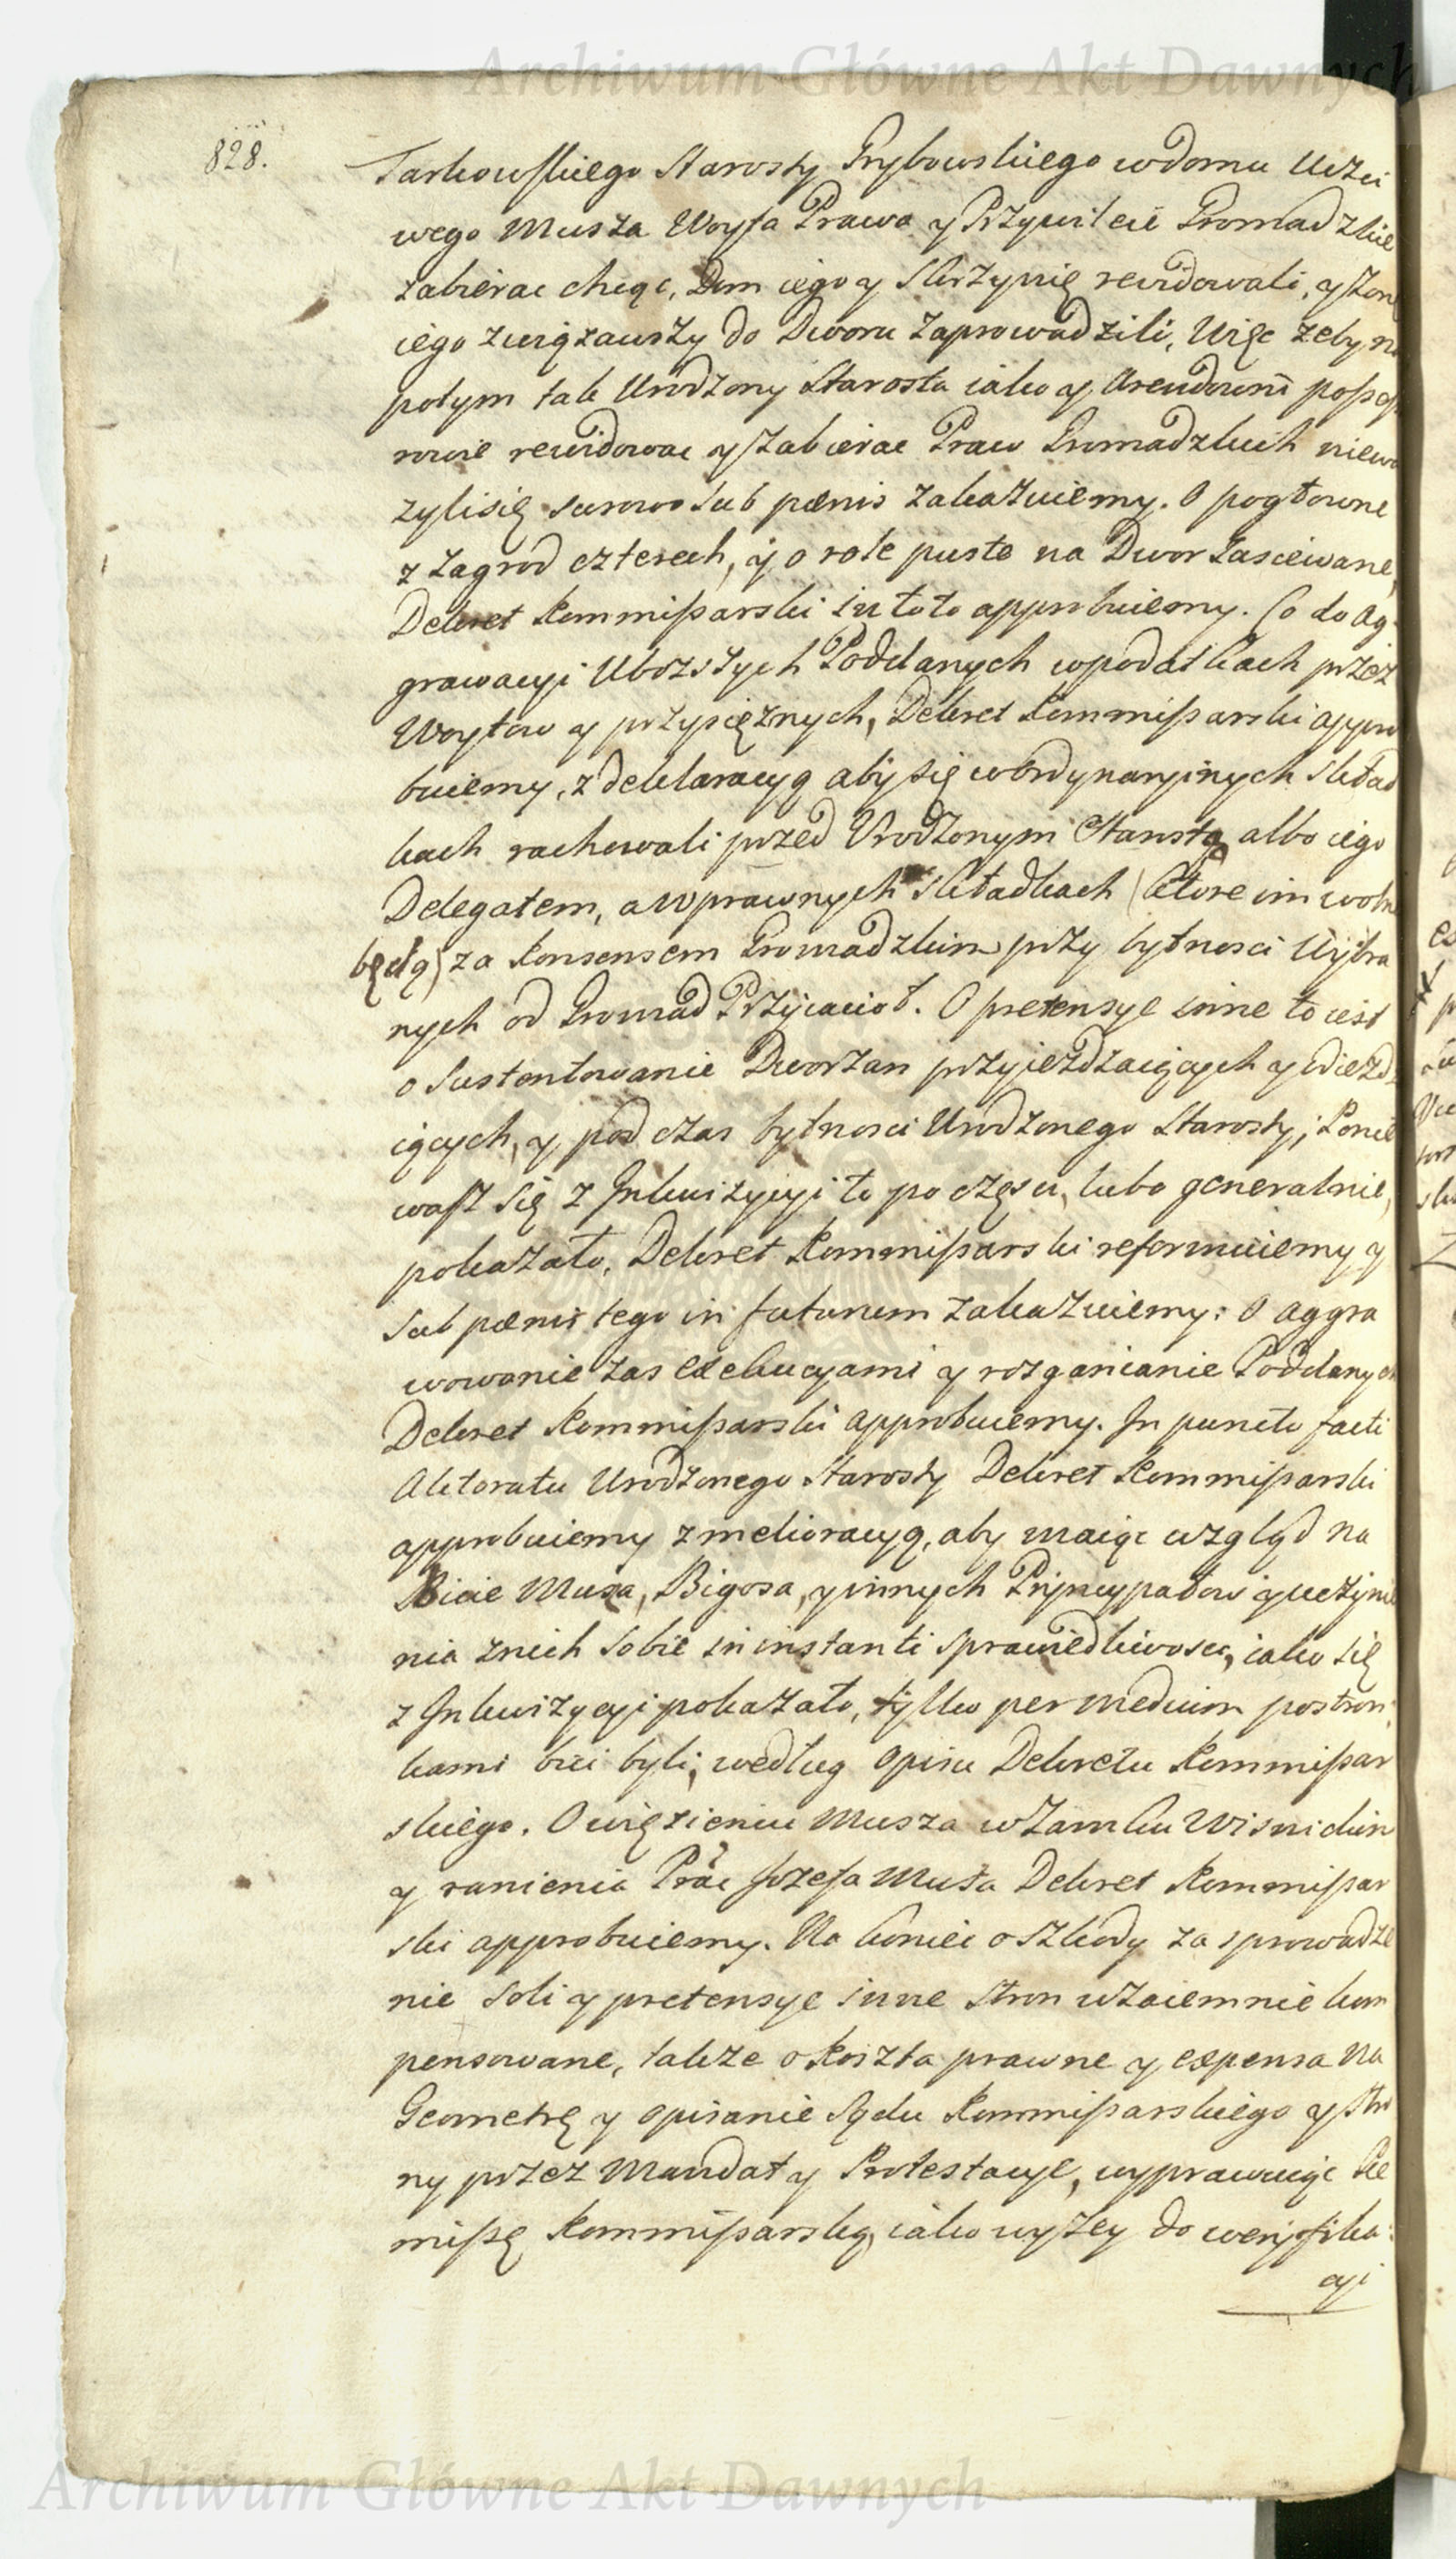 Archiwum Główne Akt Dawnych
828.
Tarkowskiego Starosty Grybowskiego w domu Uczci
wego Musza Woyta Prawa y Przywileie Gromadzkie
zabierac chcąc, Dom iego y Skrzynię rewidowali, y żonę
iego związawszy do Dworu zaprowadzili, Więc zeby na
potym tak Urodzony Starosta iako y Arendowni possesso
rowie rewidowac y zabierac Praw Gromadzkich niewa
zylisię surowo sub pænis zakazuiemy. O pogłowne
z zagrod czterech, y o role puste na Dwor zasiewane,
Dekret Kommissarski in toto approbuiemy. Co do ag
grawacyi Uboższych Poddanych w podatkach przez
Woytow y przysiężnych, Dekret Kommissarski appro
buiemy, z deklaracyą aby się w ordynaryinych skład
kach rachowali przed Urodzonym Starostą albo iego
Delegatem, a w prawnych składkach (ktore im wolne
będą) za konsensem Gromadzkim przy bytnosci Wybra
nych od Gromad Przyiacioł. O pretensye inne to iest
o sustentowanie Dworzan przyieżdzaiących y wieżdz
iących, y pod czas bytnosci Urodzonego Starosty; Ponie
waſz się z Inkwizycyi to po częsci, lubo generalnie,
pokazało, Dekret Kommissarski reformuiemy y
sub pænis tego in futurum zakazuiemy: O aggra
wowanie zas exekucyami y rozganianie Poddanych
Dekret Kommissarski approbuiemy. In puncto facti
Aktoratu Urodzonego Starosty Dekret Kommissarski
approbuiemy z melioracyą, aby maiąc wzgląd na
Bicie Musza, Bigosa, y innych Pryncypałow y uczynie
nia z nich sobie in instanti sprawiedliwosci, iako się
z Inkwizycyi pokazało, tylko per medium postron
kami bici byli, według opisu Dekretu Kommissar
skiego. O więzieniu Musza w Zamku Wisnickim
y ranienia Prac Jozefa Musza Dekret Kommissar
ski approbuiemy. Na koniec o szkody za sprowadze
nie soli y pretensye inne stron wzaiemnie kom
pensowane, takze o koszta prawne y expensa na
Geometrę y opisanie Sądu Kommissarskiego y stro
ny przez Mandat y Protestacye, wyprawuiąc Re
missę Kommissarską, iako wyżey do weryfika:
cyi
Archiwum Główne Akt Dawnych